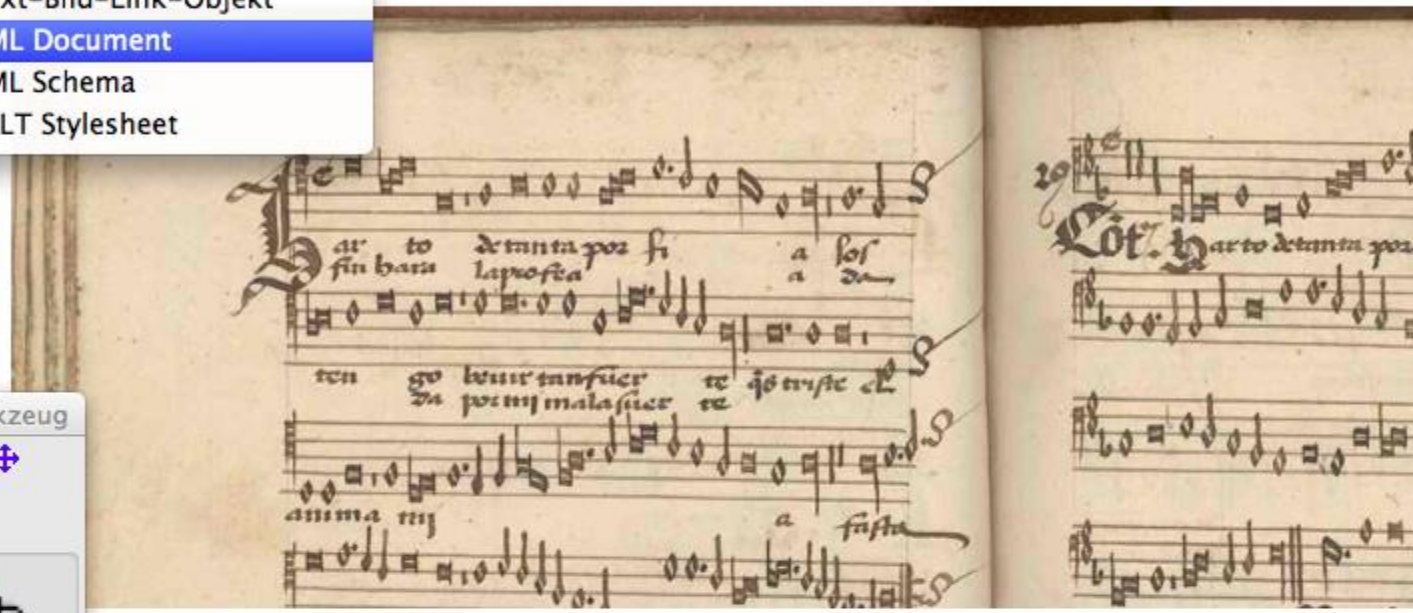 xt-Bild-Link-Objekt
ML Document
ML Schema
LT Stylesheet
kzeug
Har to de tanta por fi a los
fin hara la prosea a da
ten go beuir tan fuer te q̃s triste el
da por mi mala fuer te
anima mi a fasta
29
Cõt. Harto de tanta por